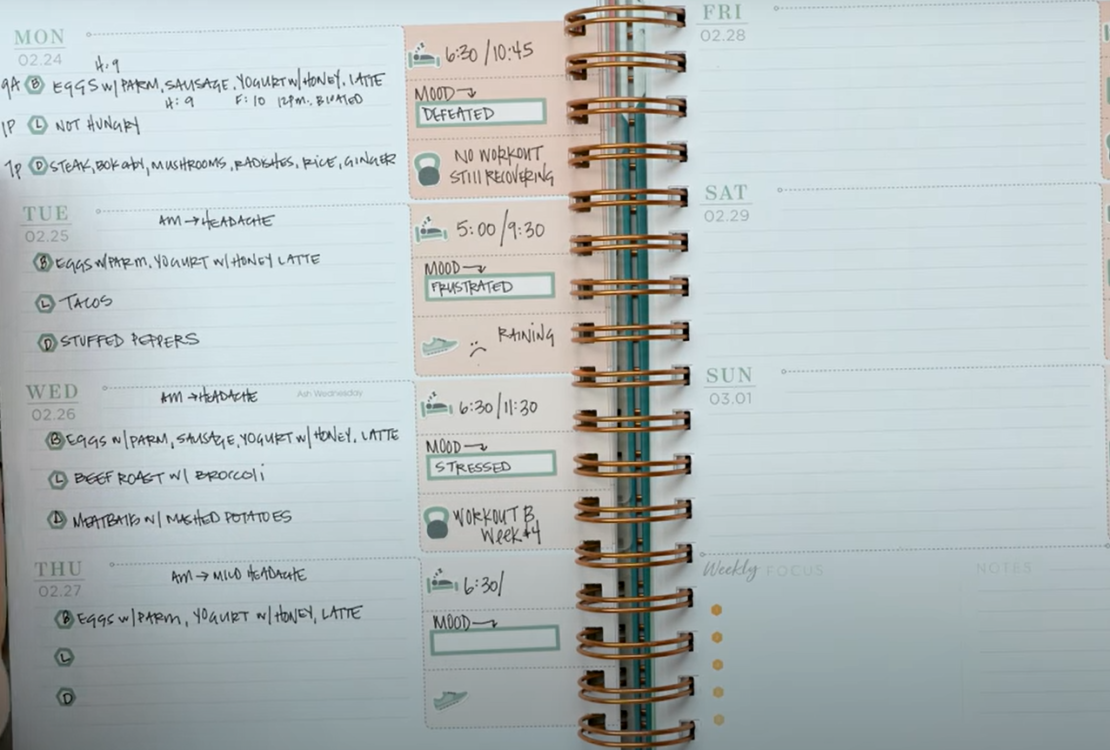 MON
02.24
H:9
9A B EGGS W/PARM, SAUSAGE, YOGURT W/HONEY, LATTE
H:9 F:10 12PM: BLOATED
1P L NOT HUNGRY
7P D STEAK, BOK CHOY, MUSHROOMS, RADISHES, RICE, GINGER
6:30 /10:45
MOOD→
DEFEATED
NO WORKOUT
STILL RECOVERING
TUE
02.25
AM → HEADACHE
B EGGS W/PARM, YOGURT W/HONEY LATTE
L TACOS
D STUFFED PEPPERS
5:00/9:30
MOOD→
FRUSTRATED
RAINING
WED
02.26
AM → HEADACHE
Ash Wednesday
B EGGS W/PARM, SAUSAGE, YOGURT W/HONEY, LATTE
L BEEF ROAST W/ BROCCOLI
D MEATBALLS W/ MASHED POTATOES
6:30/11:30
MOOD→
STRESSED
WORKOUT B
WEEK #4
THU
02.27
AM → MILD HEADACHE
B EGGS W/PARM, YOGURT W/HONEY, LATTE
L
D
6:30/
MOOD→
FRI
02.28
SAT
02.29
SUN
03.01
Weekly FOCUS
NOTES